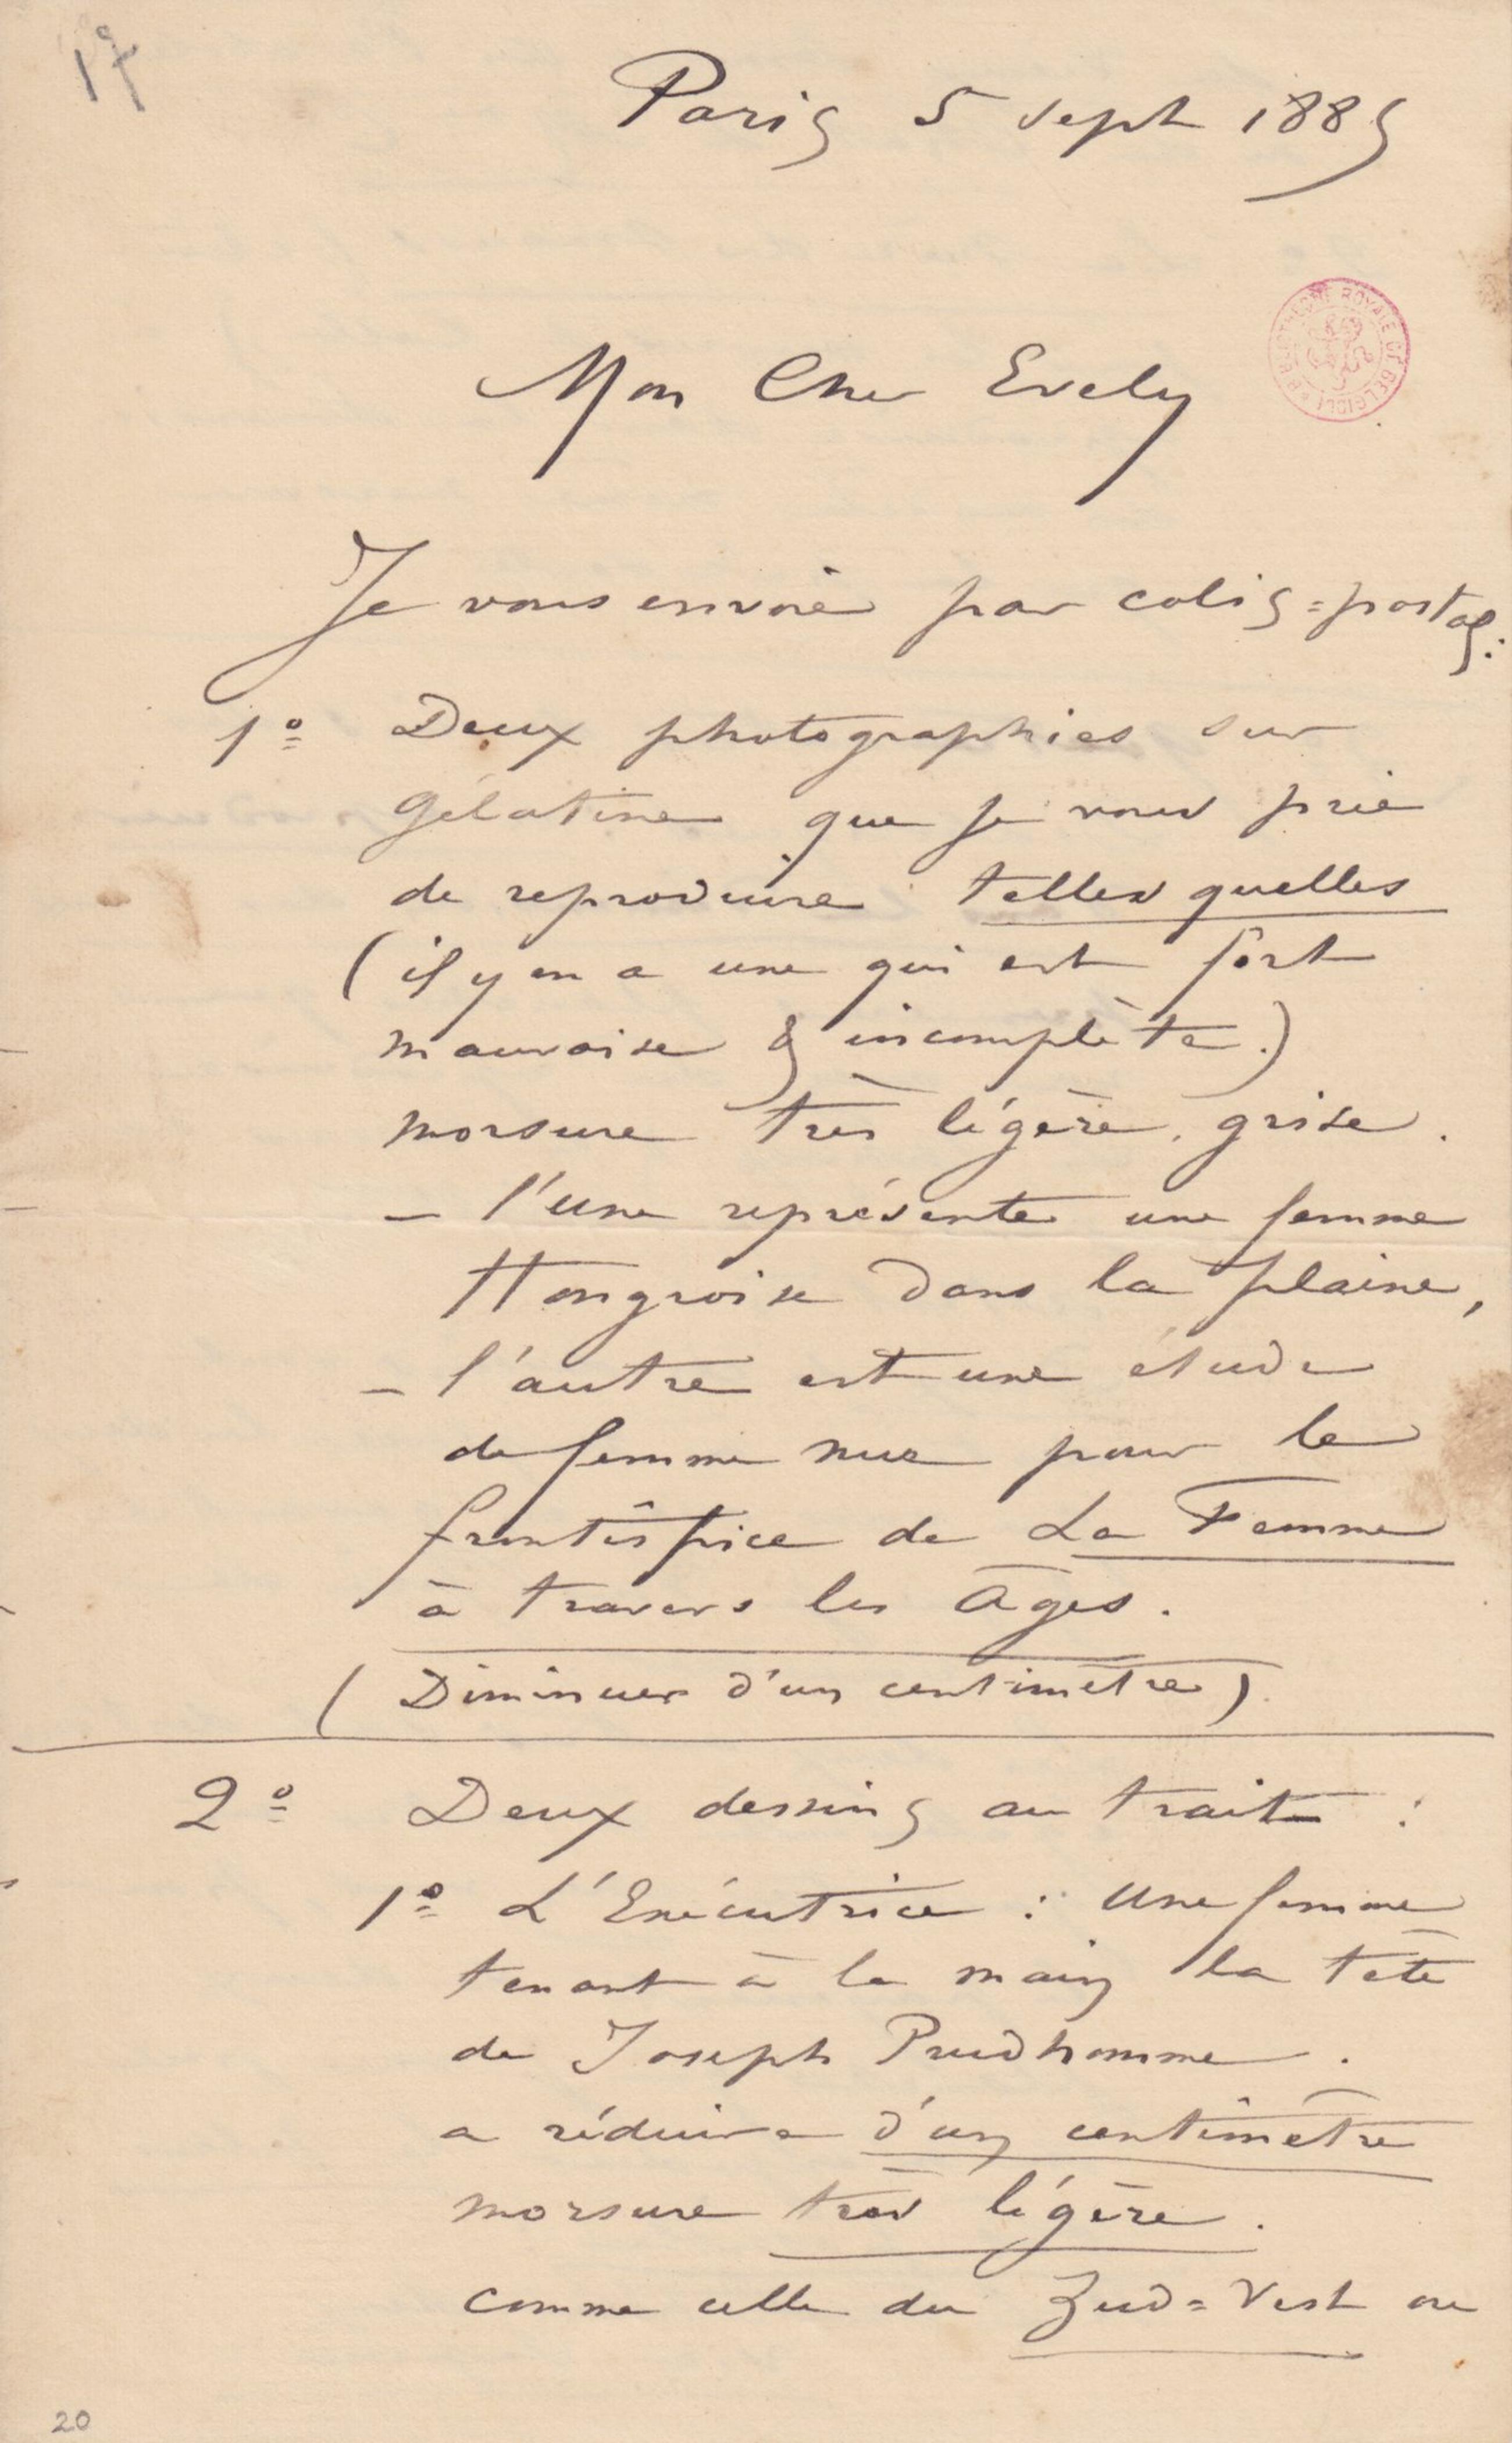 17
Paris 5 Sept 1885
BIBLIOTHÈQUE ROYALE DE BELGIQUE
Mon Cher Evely
Je vous envoie par colis=postal:
1º Deux photographies sur
gélatine que je vous prie
de reproduire telles quelles
(il y en a une qui est fort
mauvaise & incomplète.)
morsure très légère, grise.
– l'une représente une femme
Hongroise dans la plaine,
– l'autre est une étude
de femme nue pour le
frontispice de La Femme
à travers les âges.
(Diminuer d'un centimètre)
2º Deux dessins au trait :
1º L'Exécutrice : Une femme
tenant à la main la tête
de Joseph Prudhomme.
a réduire d'un centimètre
morsure très légère.
comme celle du Zud=Vest ou
20